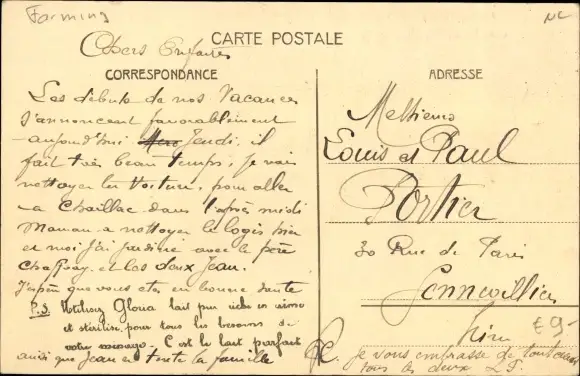 Farming
NC
CARTE POSTALE
Chers Enfants
CORRESPONDANCE
Les débuts de nos Vacances
s'annoncent favorablement
aujourd'hui Jeudi, il
fait très beau temps, je vais
nettoyer la Voiture, pour aller
a Chaillac dans l'après midi
Maman a nettoyer le logis hier
et moi j'ai jardiné avec le père
et les deux Jean.
J'espère que vous etes en bonne santé
P.S. Utilisez Gloria lait pur riche en crème
et stérilisé pour tous les besoins de
votre ménage. C'est le lait parfait
ainsi que Jean et toute la famille
ADRESSE
Messieurs
Louis et Paul
Portier
30 Rue de Paris
Gennevilliers
Seine
£9-
Je vous embrasse de tout coeur
tous les deux L.P.